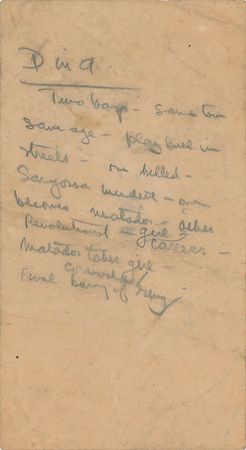 D in A
Two boys - same town
same age - play bull in
streets - one killed -
becomes matador - other
Revolutionist - girl
careers -
Matador takes girl
Final bury of